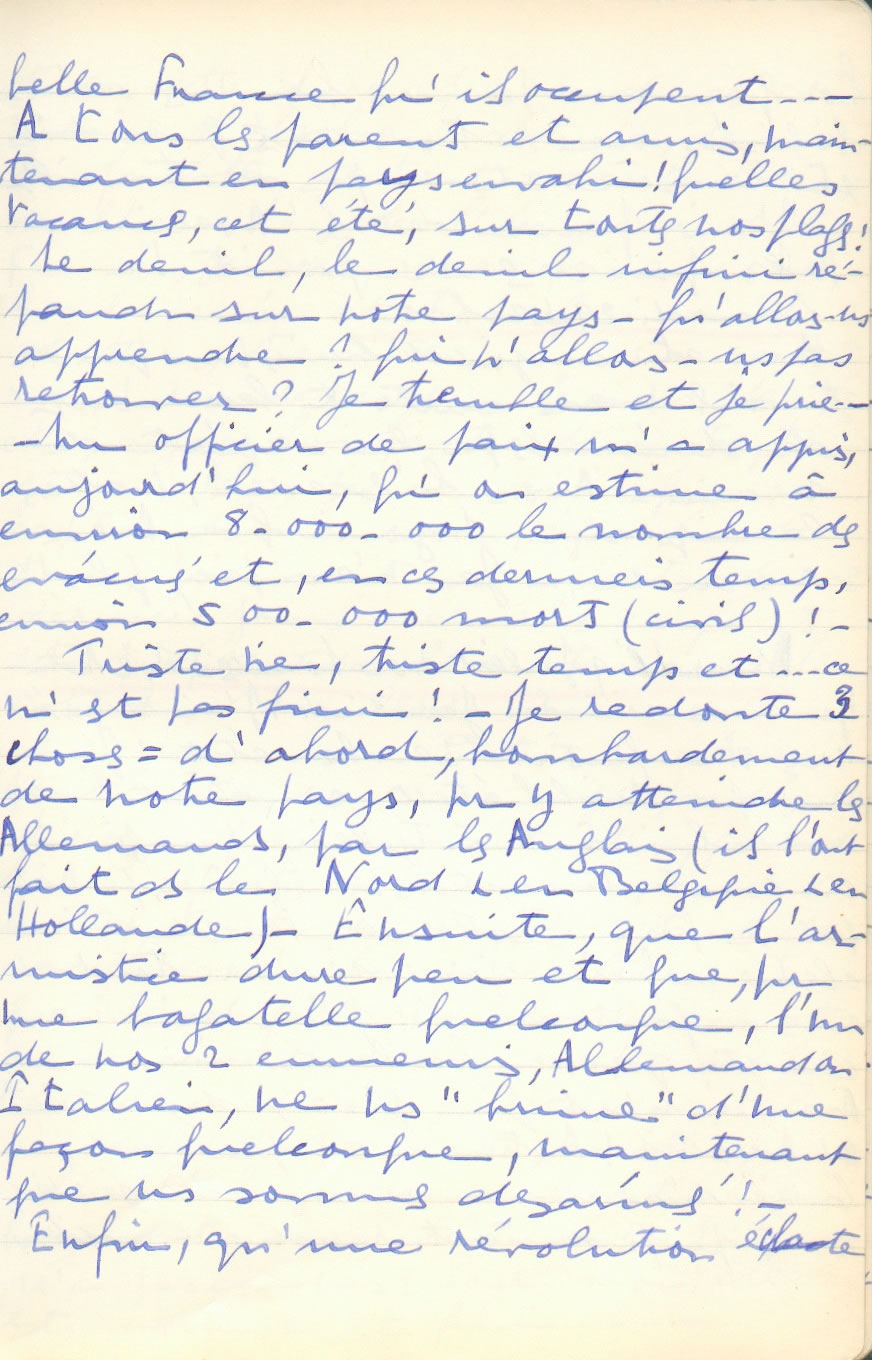 belle France qu'ils occupent ---
A tous les parents et amis, main-
tenant en pays envahi! Quelles
vacances, cet été, sur toutes nos plages!
Le deuil, le deuil infini ré-
pandu sur notre pays - qu'allons-ns
apprendre? qui n'allons-ns pas
retrouver? Je tremble et je prie --
- Un officier de paix m'a appris,
aujourd'hui, qu'on estime à
environ 8-000-000 le nombre des
évacués et, en ces derniers temps,
environ 500-000 morts (civils)! -
Triste vie, triste temps et ... ce
n'est pas fini! - Je redoute 3
choses = d'abord, bombardement
de notre pays, pr y atteindre les
Allemands, par les Anglais (ils l'ont
fait ds le Nord & en Belgique & en
Hollande) - Ensuite, que l'ar-
mistice dure peu et que, pr
une bagatelle quelconque, l'un
de nos 2 ennemis, Allemand ou
Italien, ne ns "brime" d'une
façon quelconque, maintenant
que ns sommes désarmés! -
Enfin, qu'une révolution éclate